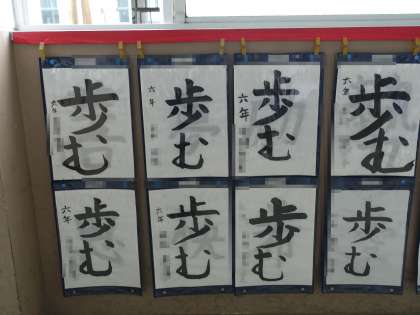 歩む
六年
歩む
六年
歩む
六年
歩む
六年
歩む
六年
歩む
六年
歩む
歩む
六年